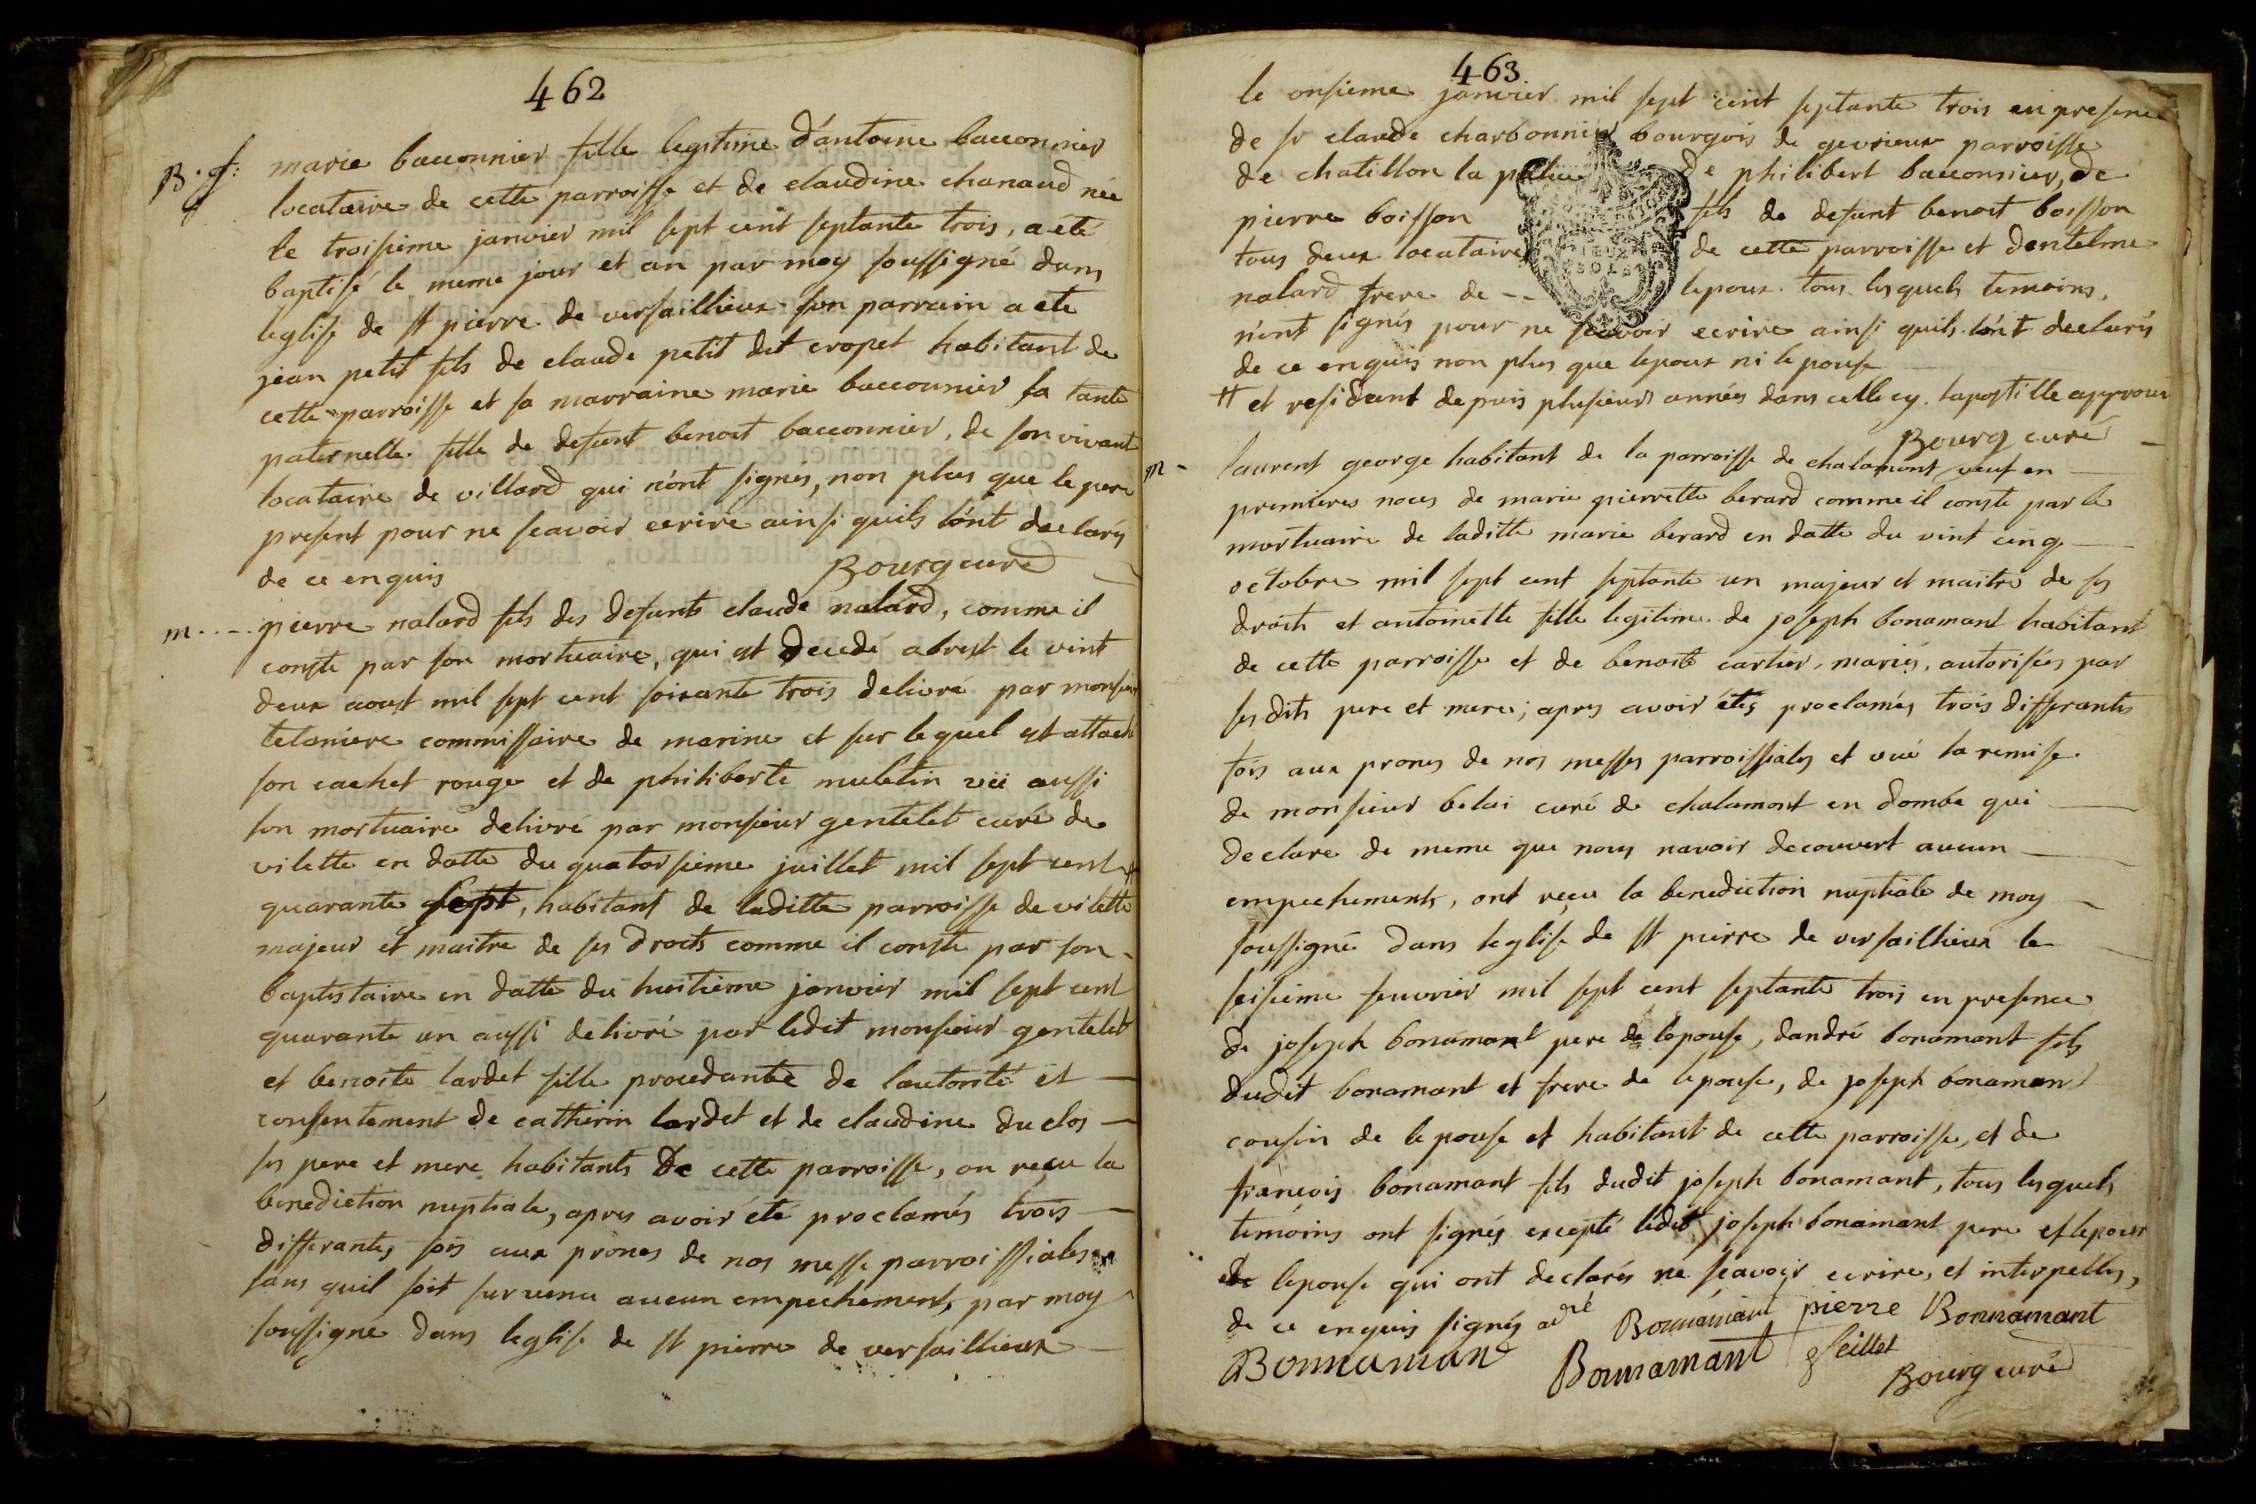 462
B. f: marie bacconnier fille legitime d'antoine bacconnier
locataire de cette parroisse et de claudine chanaud née
le troisieme janvier mil sept cent septante trois, a été
baptisé le meme jour et an par moy soussigné dans
leglise de st pierre de versaillieux son parrain a ete
jean petit fils de claude petit dit cropet habitant de
cette parroisse et sa marraine marie bacconnier sa tante
paternelle fille de defunt benoit bacconnier, de son vivant
locataire de villard qui n'ont signés, non plus que le pere
present pour ne scavoir ecrire ainsi quils l'ont declarés
de ce enquis Bourg curé
m. pierre nalard fils des defunts claude nalard, comme il
conste par son mortuaire, qui est decedé a brest le vint
deux aoust mil sept cent soixante trois delivré par monsieur
telaniere commissaire de marine et sur lequel est attaché
son cachet rouge et de philiberte muletin vü aussi
son mortuaire delivré par monsieur gentelet curé de
vilette en datte du quatorsieme juillet mil sept cent #
quarante sept, habitant de laditte parroisse de vilette
majeur et maitre de ses droits comme il conste par son
baptistaire en datte du huitieme janvier mil sept cent
quarante un aussi delivré par ledit monsieur gentelet
et benoite lardet fille procedante de lautorité et
consentement de catherin lardet et de claudine du clos
ses pere et mere habitants de cette parroisse, on reçu la
benediction nuptiale, apres avoir été proclamés trois
differantes fois aux prones de nos messe parroissiales
sans quil soit survenu aucun empechement, par moy
soussigné dans leglise de st pierre de versaillieux
463
le onsieme janvier mil sept cent septante trois en presence
de sr claude charbonnier bourgois de gevrieux parroisse
de chatillon la palue de philibert bacconnier, de
pierre boisson fils de defunt benoit boisson
tous deux locataires de cette parroisse et dantelme
nalard frere de -- lepoux. tous lesquels temoins,
n'ont signés pour ne scavoir ecrire ainsi quils l'ont declarés
de ce enquis non plus que lepoux ni lepouse
# et residant depuis plusieurs années dans celle cy. lapostille approuv
Bourg curé
m - laurent george habitant de la parroisse de chalamont veuf en
premieres noces de marie pierrette berard comme il conste par le
mortuaire de laditte marie berard en datte du vint cinq
octobre mil sept cent septante un majeur et maitre de ses
droits et antoinette fille legitime de joseph bonamant habitant
de cette parroisse et de benoite cartier, mariés, autorisées par
ses dits pere et mere; apres avoir étés proclamés trois differantes
fois aux prones de nos messes parroissiales et vuë la remise
de monsieur belai curé de chalamont en dombe qui
declare de meme que nous navoir decouvert aucun
empechement, ont reçu la benediction nuptiale de moy
soussigné dans leglise de st pierre de versaillieux le
seisieme fevrier mil sept cent septante trois en presence
de joseph bonamant pere de lepouse, dandré bonamant fils
dudit bonamant et frere de lepouse, de joseph bonamant
cousin de lepouse et habitant de cette parroisse, et de
françois bonamant fils dudit joseph bonamant, tous lesquels
temoins ont signés excepté ledit joseph bonamant pere et lepoux
lepouse qui ont declarés ne scavoir ecrire, et interpellés,
de ce enquis signés adré Bonnamant pierre Bonnamant
Bonnamant Bonnamant geillet
Bourg curé